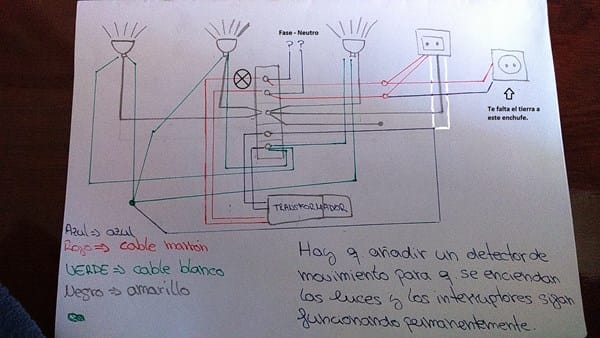 Fase - Neutro
? ?
Te falta el tierra a
este enchufe.
TRANSFORMADOR
Azul => azul
Rojo => cable marrón
VERDE => cable blanco
Negro => amarillo
Hay q. añadir un detector de
movimiento para q. se enciendan
las luces y los interruptores sigan
funcionando permanentemente.